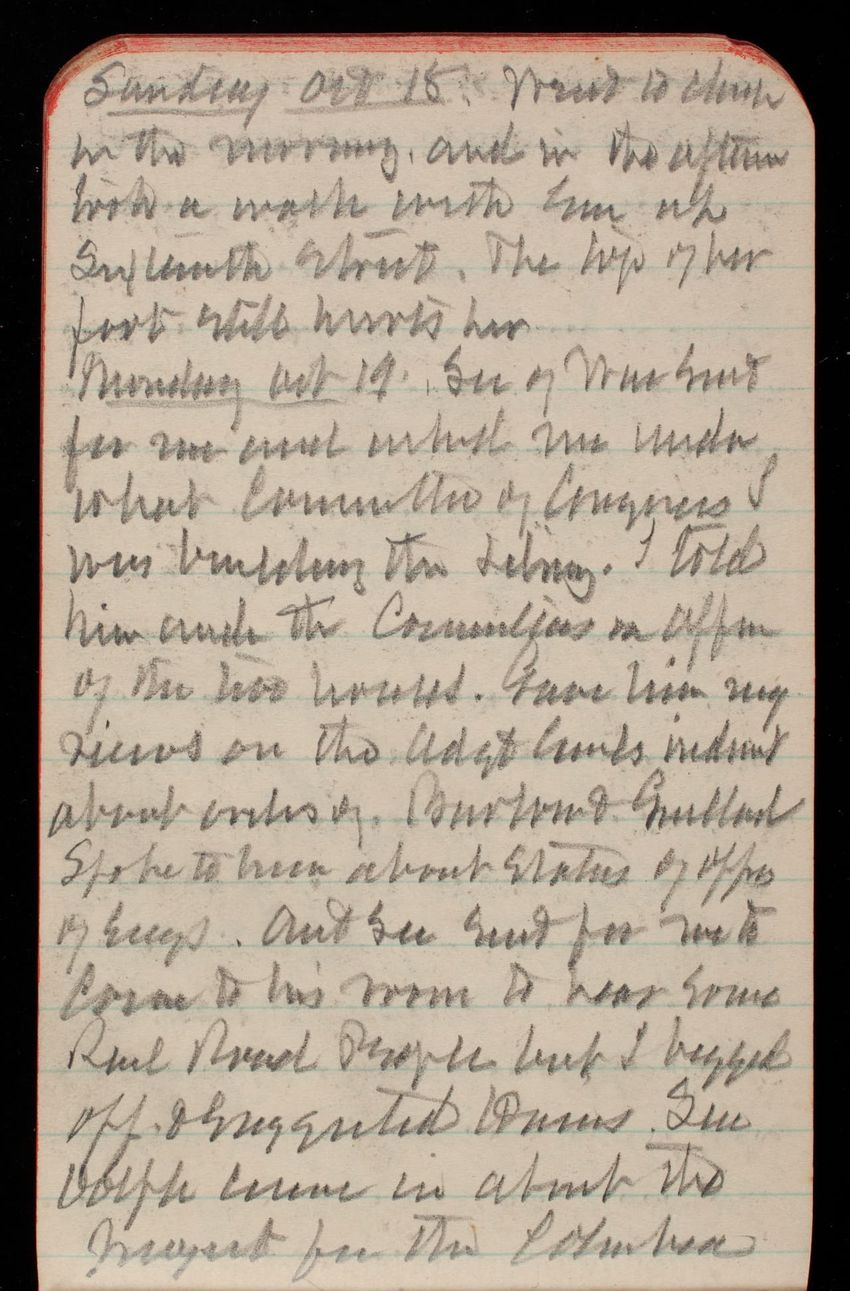 Sunday Oct 18. Went to church
in the morning. and in the afternoon
took a walk with Em up
Sixteenth Street. The top of her
foot still hurts her
Monday Oct 19. Sec of War Sent
for me and asked me under
what Committee of Congress I
was building the Library. I told
him under the Committees on
of the two houses. Gave him my
views on the Adgt Genls
about orders of. Burton &
Spoke to him about Status of offrs
of Engs. Act Sec Sent for me to
Come to his room to hear Some
Rail Road People but I begged
off. & Suggested Sen
Dolph came in about the
project for the Columbia